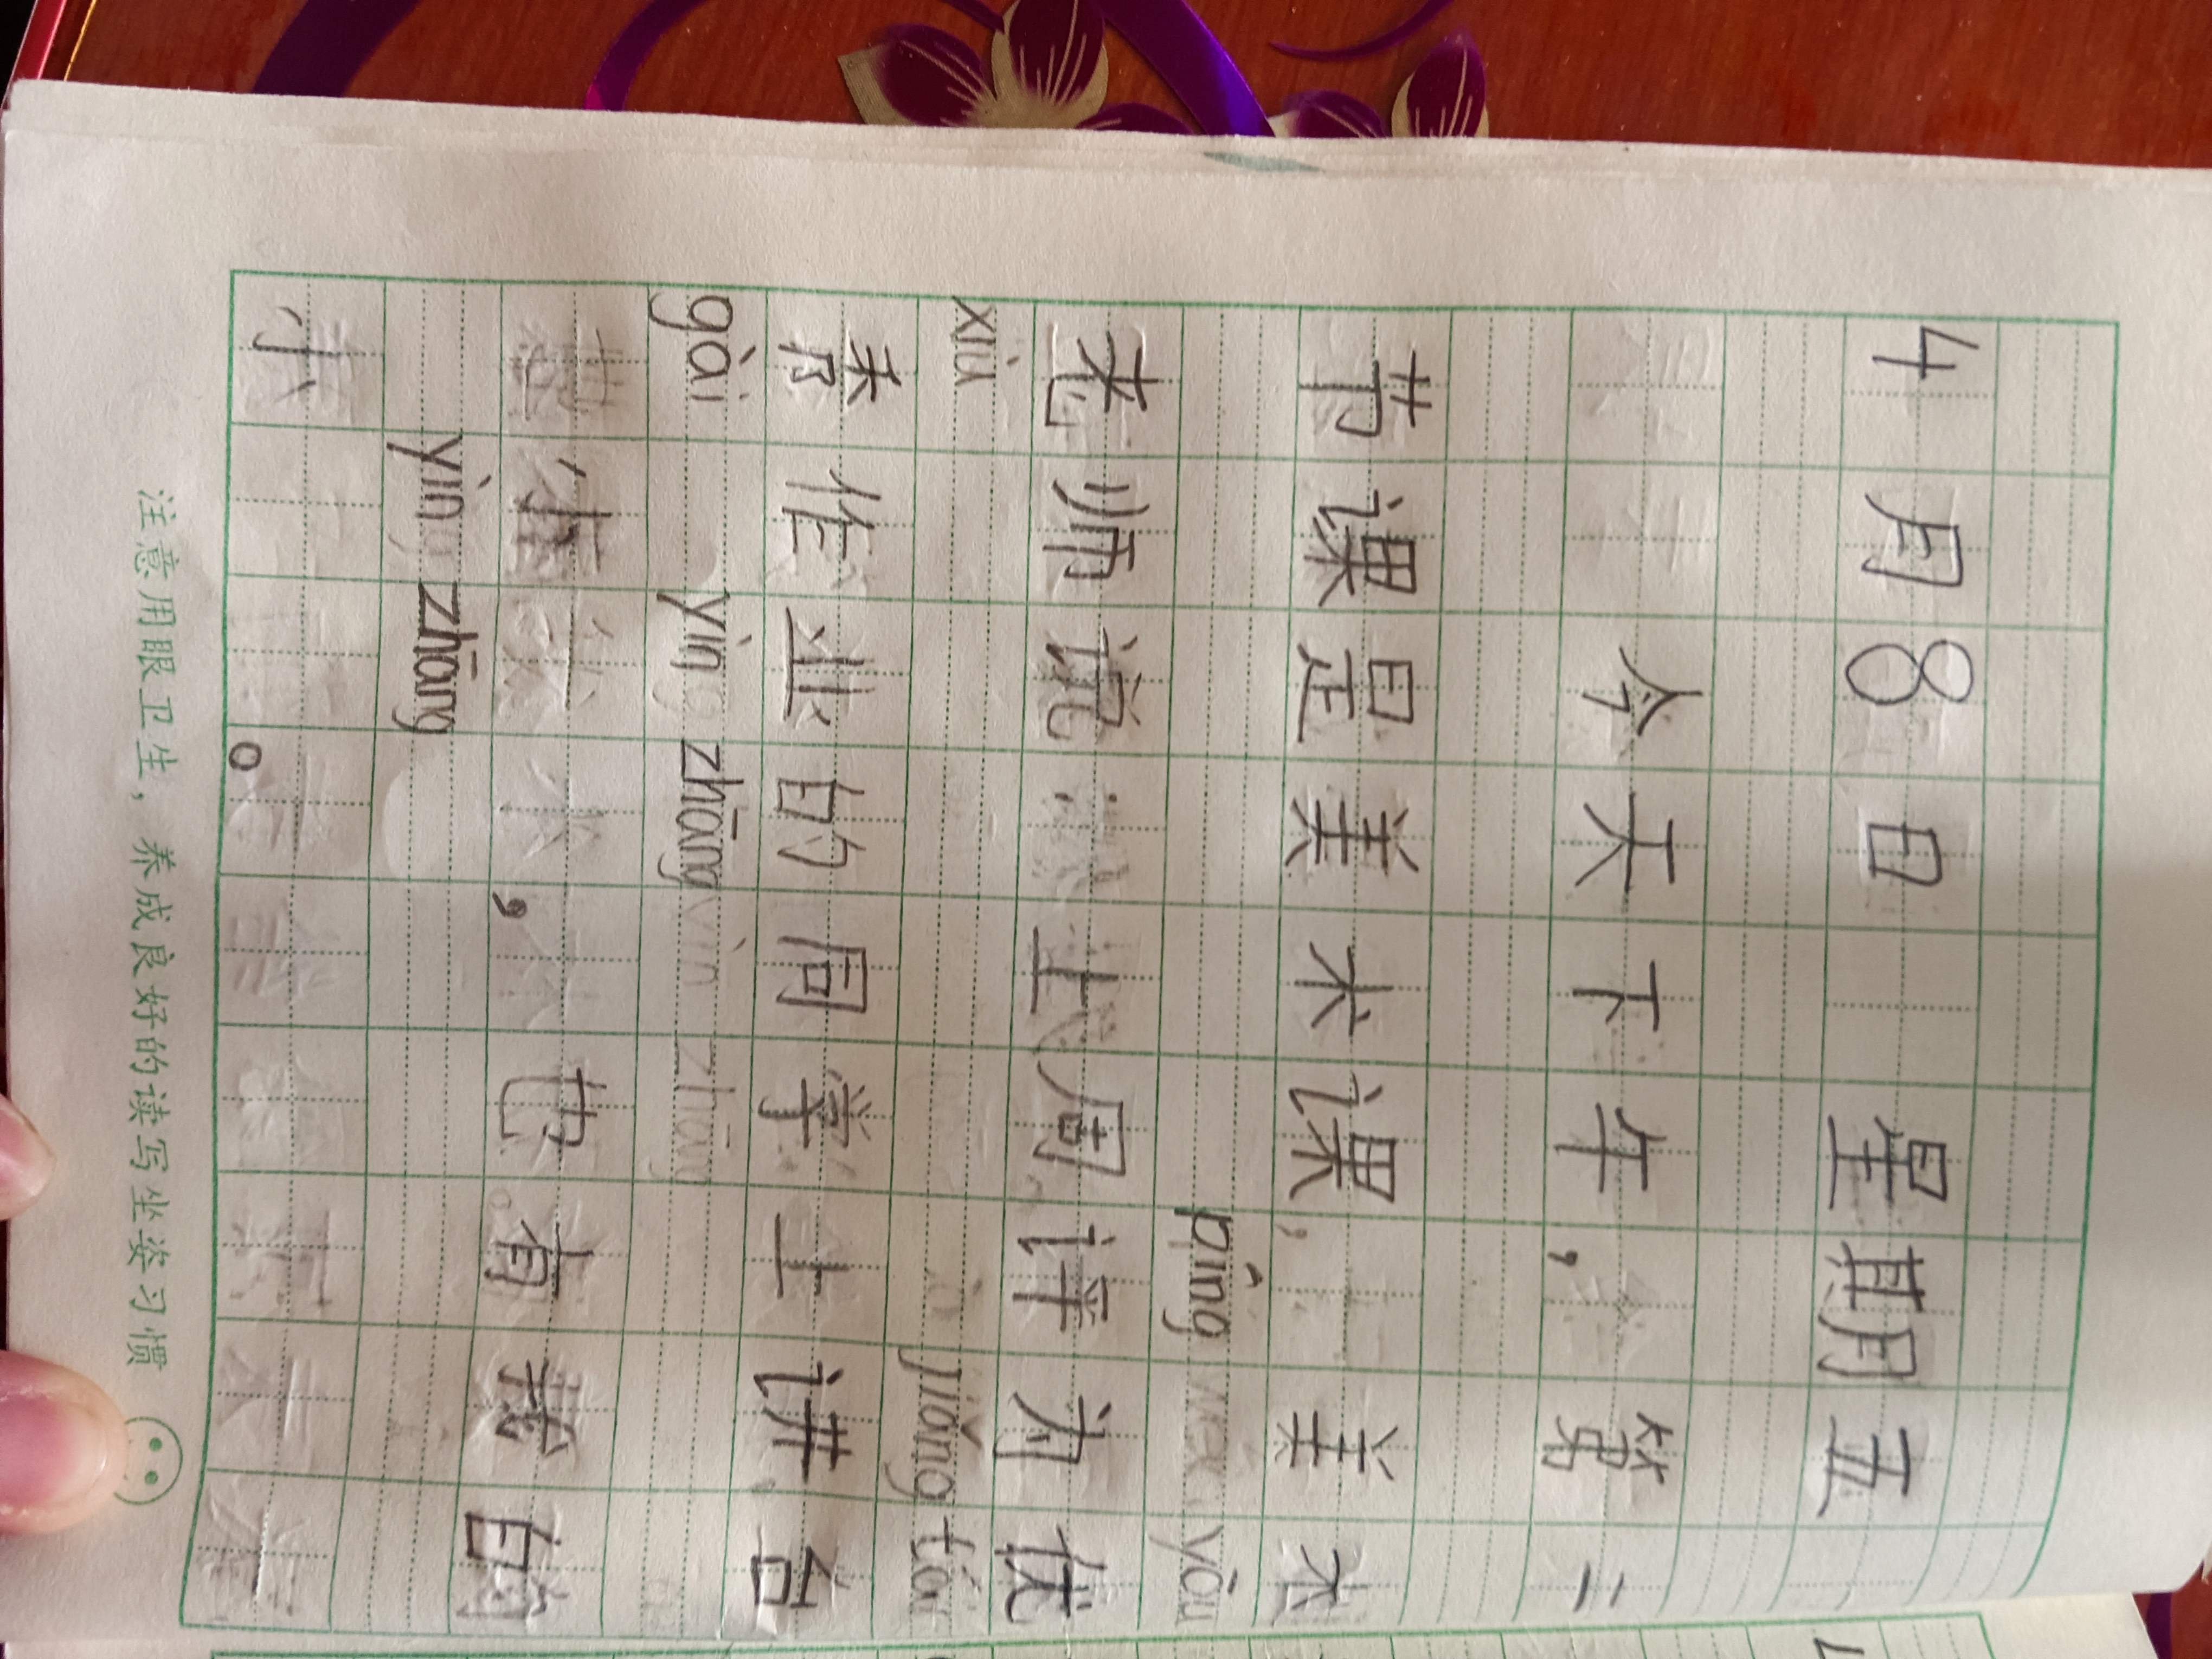 4月8日 星期五
今天下午，第二
节课是美术课，美术
píng yōu
老师说：上周评为优
xiù jiǎng tái
秀作业的同学上讲台
gài yìn zhāng
盖
，也有我的
yìn zhāng
。
注意用眼卫生，养成良好的读写坐姿习惯